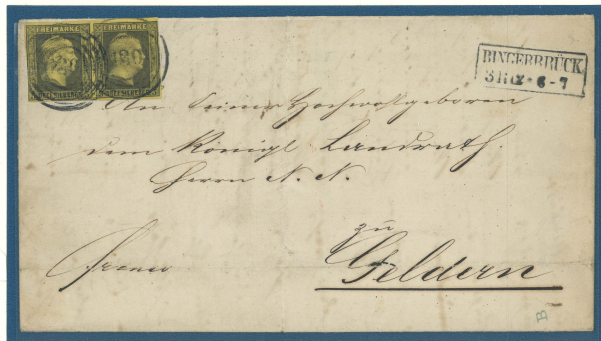 FREIMARKE FREIMARKE
BINGERBRÜCK
An Seiner Hochwohlgeboren
dem Königl Landrath.
Herrn N. N.
zu
Geldern
franco
B